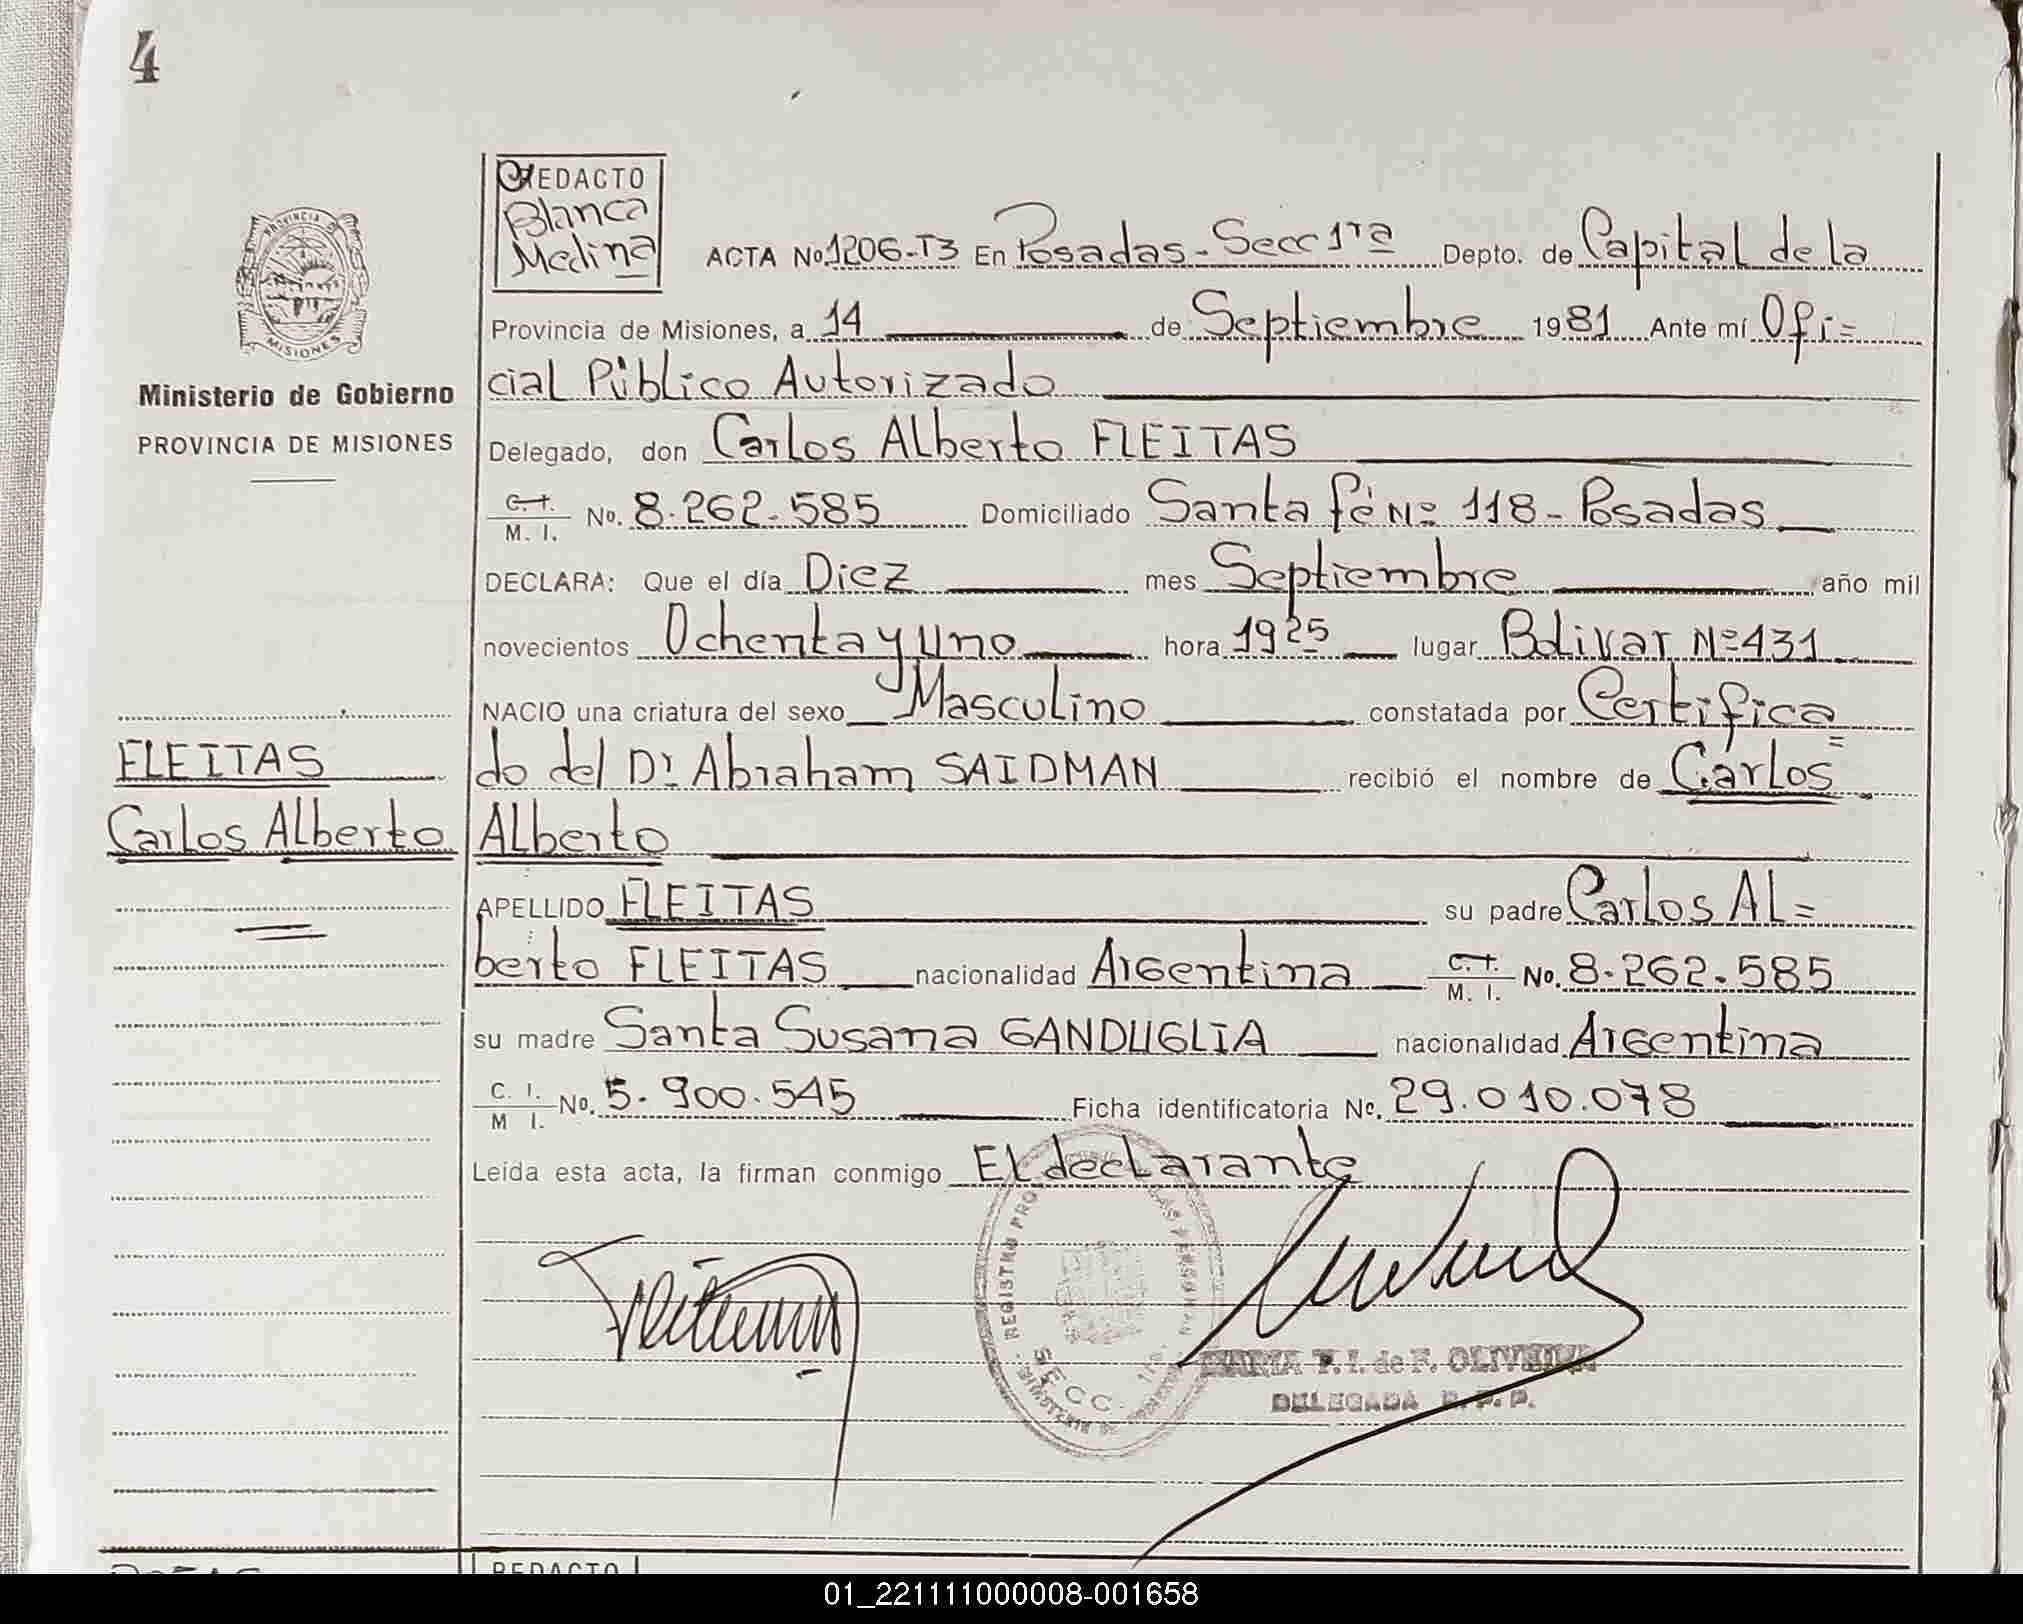 4
REDACTO
Blanca
Medina
ACTA No. 1206-T3 En Posadas - Secc 1ra Depto. de Capital de la
Provincia de Misiones, a 14 de Septiembre 1981 Ante mí Ofi=
cial Público Autorizado
Delegado, don Carlos Alberto FLEITAS
C. I. M. I. No. 8.262.585 Domiciliado Santa Fé Nº 118 - Posadas
DECLARA: Que el día Diez mes Septiembre año mil
novecientos Ochenta y Uno hora 19 25 lugar Bolivar Nº 431
NACIO una criatura del sexo Masculino constatada por Certifica=
do del Dr Abraham SAIDMAN recibió el nombre de Carlos
Alberto
APELLIDO FLEITAS su padre Carlos Al=
berto FLEITAS nacionalidad Argentina C. I. M. I. No. 8.262.585
su madre Santa Susana GANDUGLIA nacionalidad Argentina
C. I. M I. No. 5.900.545 Ficha identificatoria No. 29.010.078
Leída esta acta, la firman conmigo El declarante
PROVINCIA DE
MISIONES
Ministerio de Gobierno
PROVINCIA DE MISIONES
FLEITAS
Carlos Alberto
REGISTRO PRO
LAS PERSONAS
SECC. 1ra.
MARIA F. I. de F. OLIVEIRA
DELEGADA R. P. P.
REDACTO
01_221111000008-001658